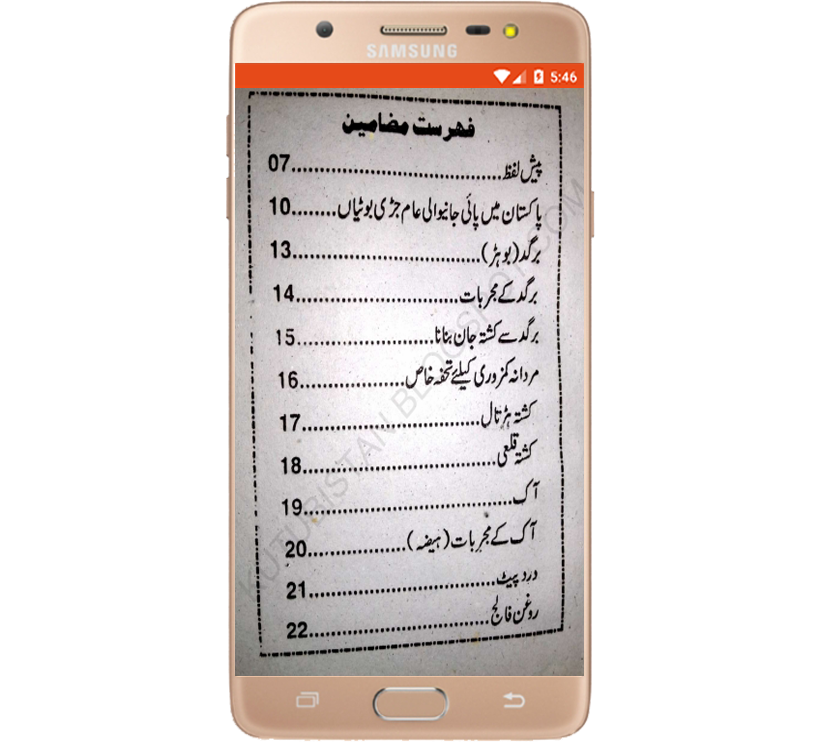 SAMSUNG
5:46
فہرست مضامین
پیش لفظ..............................07
پاکستان میں پائی جانیوالی عام جڑی بوٹیاں........10
برگد(بوہڑ)..............................13
برگد کے مجربات..............................14
برگد سے کشتہ جان بنانا..............................15
مردانہ کمزوری کیلئے تحفہ خاص..............................16
کشتہ ہڑتال..............................17
کشتہ قلعی..............................18
آک..............................19
آک کے مجربات(ہیضہ)..............................20
درد پیٹ..............................21
روغن فالج..............................22
KUTUBISTAN.BLOGSPOT.COM